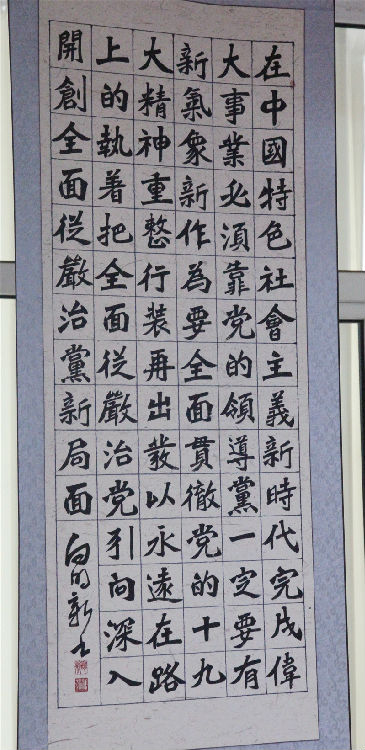 在中國特色社會主義新時代完成偉
大事業必須靠党的領導黨一定要有
新氣象新作為要全面貫徹党的十九
大精神重整行装再出發以永遠在路
上的執著把全面從嚴治党引向深入
開創全面從嚴治黨新局面